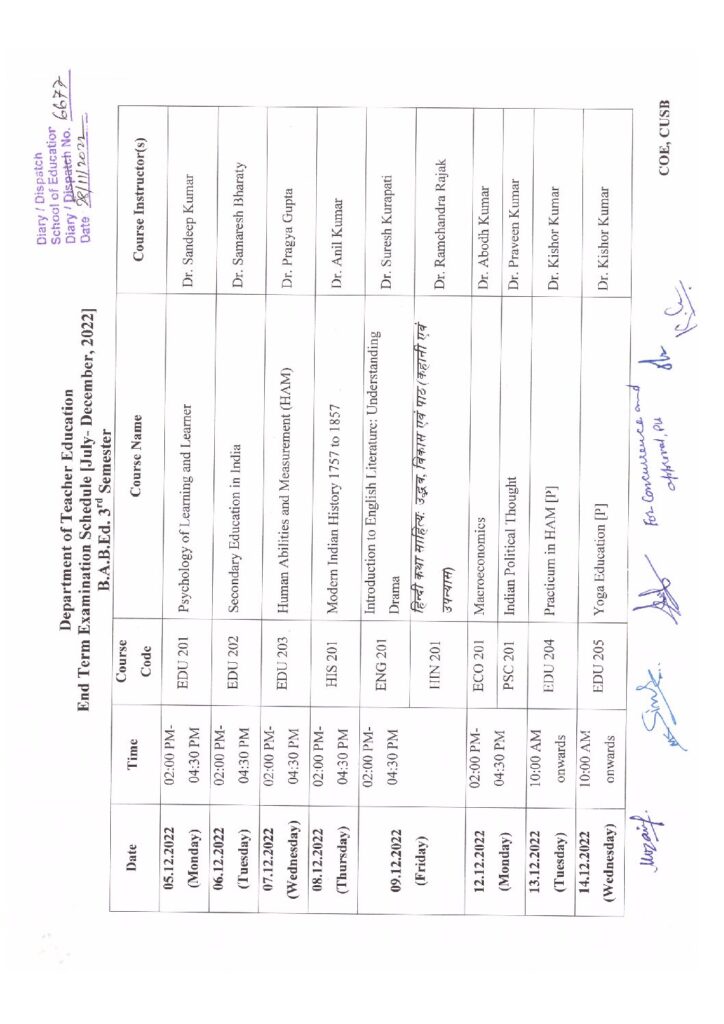 Diary / Dispatch
School of Education
Diary / Dispatch No. 6677
Date 28/11/2022
Department of Teacher Education
End Term Examination Schedule [July- December, 2022]
B.A.B.Ed. 3rd Semester
Date Time Course Code Course Name Course Instructor(s)
05.12.2022 (Monday) 02:00 PM- 04:30 PM EDU 201 Psychology of Learning and Learner Dr. Sandeep Kumar
06.12.2022 (Tuesday) 02:00 PM- 04:30 PM EDU 202 Secondary Education in India Dr. Samaresh Bharaty
07.12.2022 (Wednesday) 02:00 PM- 04:30 PM EDU 203 Human Abilities and Measurement (HAM) Dr. Pragya Gupta
08.12.2022 (Thursday) 02:00 PM- 04:30 PM HIS 201 Modern Indian History 1757 to 1857 Dr. Anil Kumar
09.12.2022 (Friday) 02:00 PM- 04:30 PM ENG 201 Introduction to English Literature: Understanding Drama Dr. Suresh Kurapati
HIN 201 हिन्दी कथा साहित्य: उद्भव, विकास एवं पाठ (कहानी एवं उपन्यास) Dr. Ramchandra Rajak
12.12.2022 (Monday) 02:00 PM- 04:30 PM ECO 201 Macroeconomics Dr. Abodh Kumar
PSC 201 Indian Political Thought Dr. Praveen Kumar
13.12.2022 (Tuesday) 10:00 AM onwards EDU 204 Practicum in HAM [P] Dr. Kishor Kumar
14.12.2022 (Wednesday) 10:00 AM onwards EDU 205 Yoga Education [P] Dr. Kishor Kumar
For Concurrence and
approval, pu
COE, CUSB